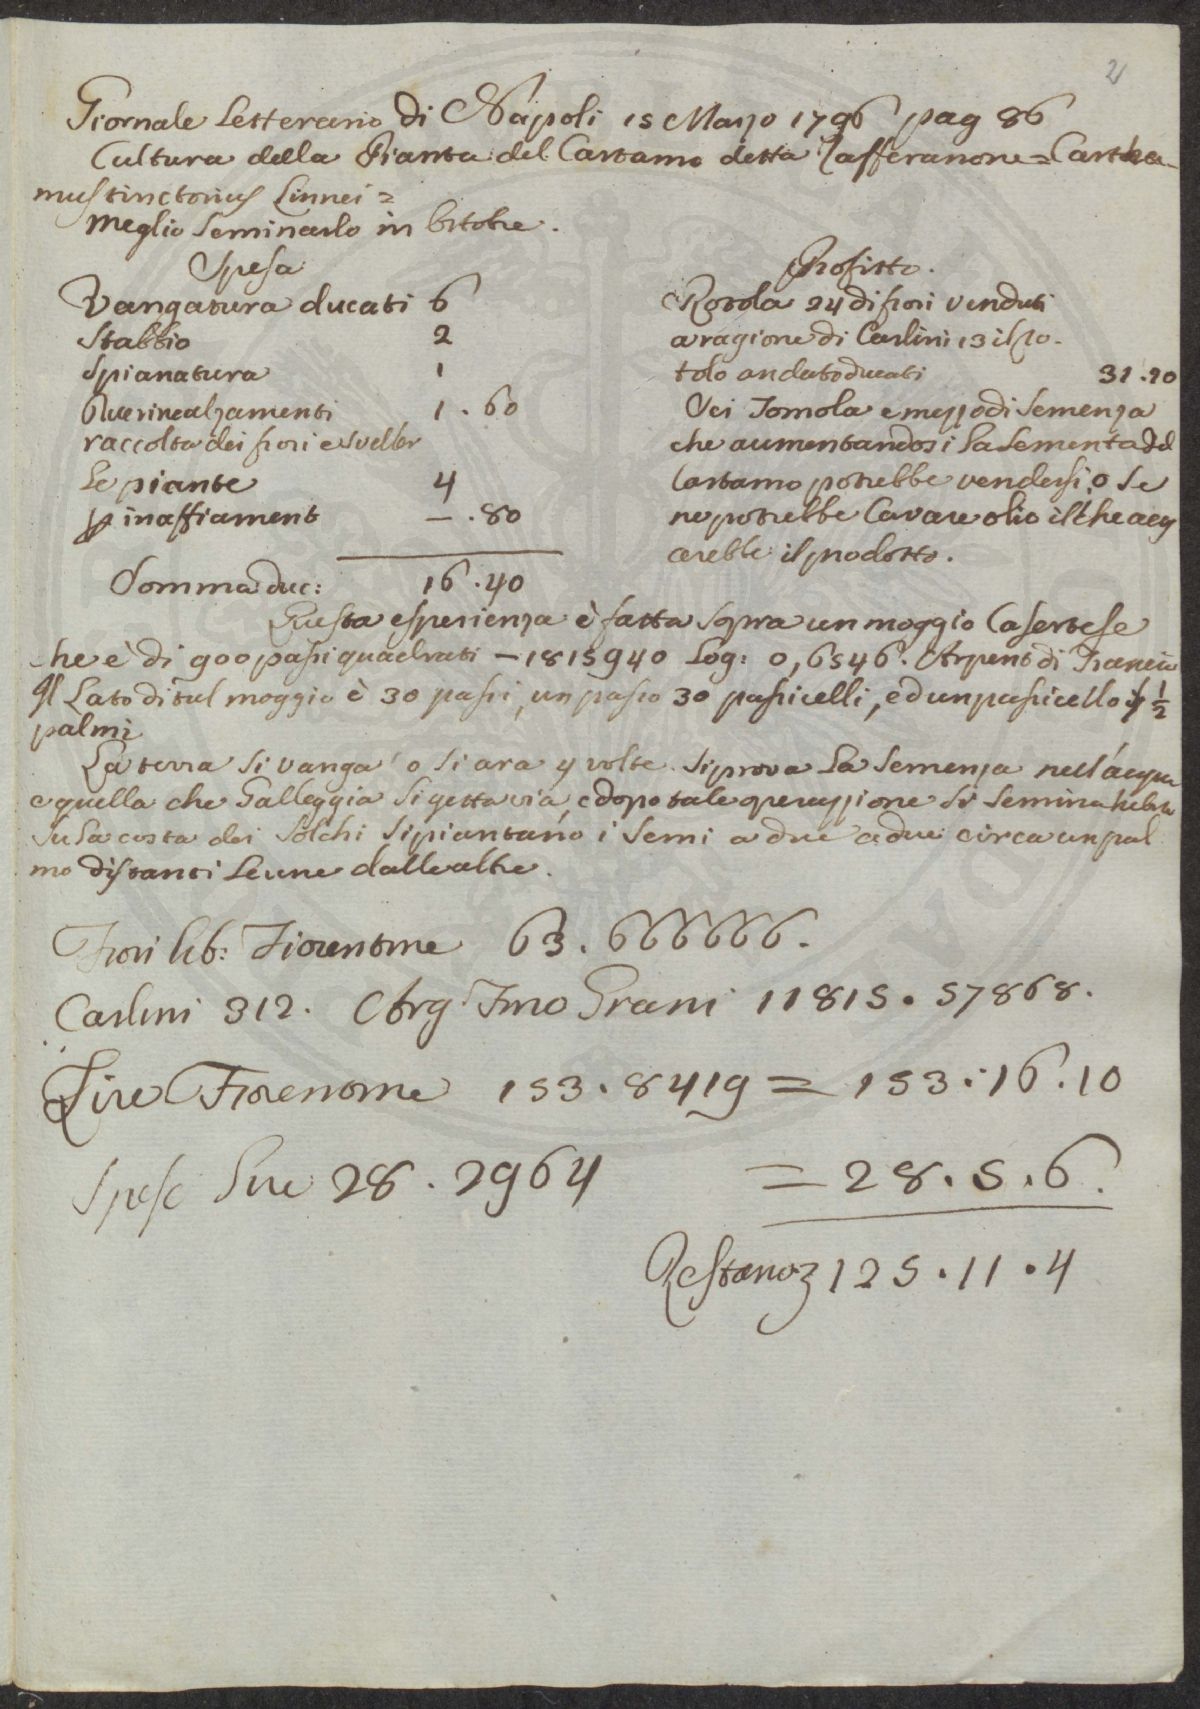 2
Giornale Letterario di Napoli 15 Marzo 1796 pag 86
Cultura della Pianta del Cartamo detta Zafferanone = Cartha-
mus tinctorius Linnei =
meglio seminarlo in 8tobre.
Spesa
Vangatura ducati 6
Stabbio 2
Spianatura 1
Due rincalzamenti 1.60
raccolta dei fiori e sveller
le piante 4
p inaffiament — .80
Somma duc: 16.40
Profitto.
Rotola 24 di fiori venduti
a ragione di Carlini 13 il ro-
tolo andato ducati 31.20
Sei Tomola e mezzo di semenza
che aumentandosi la sementa del
Cartamo potrebbe vendersi, o se
ne potrebbe cavare olio il che accr
cerebbe il prodotto.
Questa esperienza è fatta sopra un moggio Casertese
che è di 900 passi quadrati — 1815940 Log: 0,6546. Arpent di Francia
Il Lato di tal moggio è 30 passi, un passo 30 passicelli, ed un passicello 1/2
palmi
La terra si vanga o si ara 4 volte. si prova la semenza nell'acqua
e quella che Galleggia si getta via, e dopo tale operazione si semina
su la costa dei solchi si piantano i semi a due a due circa un pal
mo distanti le une dalle altre.
Fiori lib: Fiorentine 63.666666.
Carlini 312. Arg: fino Grani 11815.57868.
Lire Fiorentine 153.8419 = 153.16.10
Spese Lire 28.2964 = 28.5.6.
Restano 125.11.4